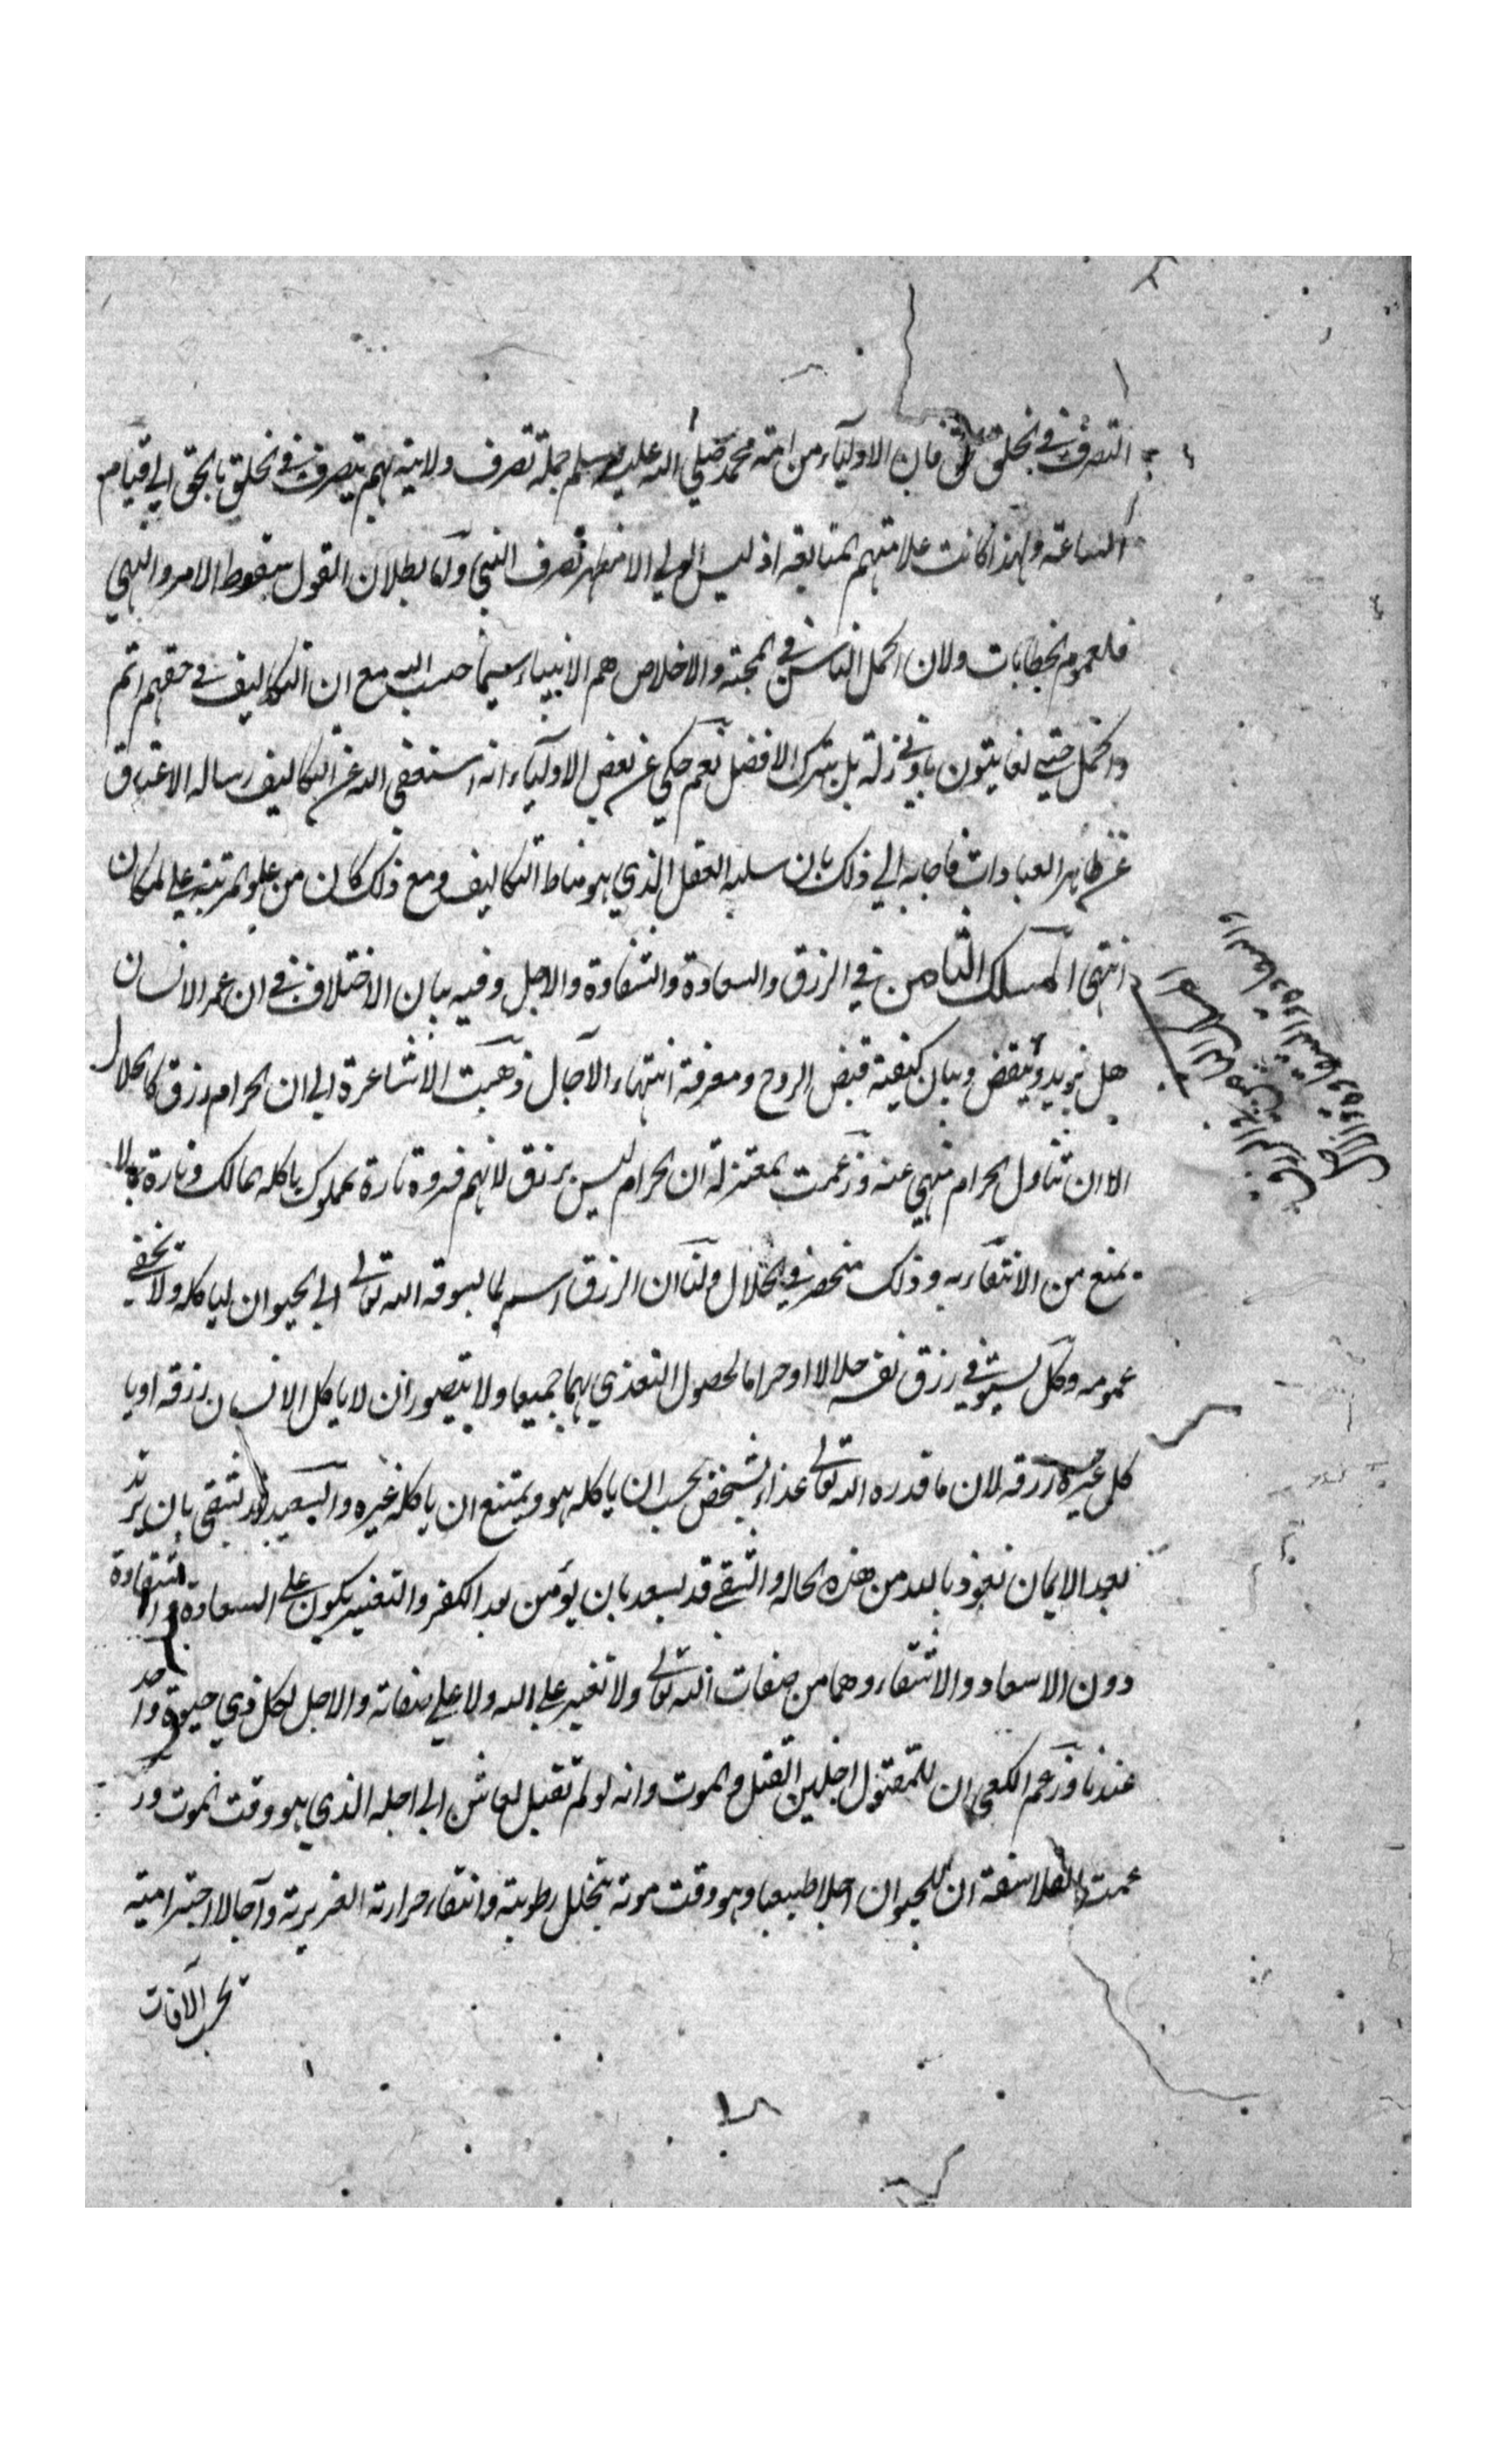 التصرف في الخلق بالحق فان الاولياء من امة محمد صلى الله عليه وسلم جملة تصرف ولايته بهم يتصرف في الخلق بالحق الى قيام
الساعة ولهذا كانت علامتهم المتابعة اذ ليس الولي الا مظهر تصرف النبي واما بطلان القول بسقوط الامر والنهي
فلعموم الخطابات ولان اكمل الناس في المحبة والاخلاص هم الانبياء سيما حبيب الله مع ان التكاليف في حقهم اتم
واكمل حتى يعاتبون بادنى زلة بل بترك الافضل نعم حكي عن بعض الاولياء انه استعفى الله عن التكاليف وساله الاعتاق
عن ظاهر العبادات فاجابه الى ذلك بان سلبه العقل الذي هو مناط التكاليف ومع ذلك كان من علو المرتبة على ما كان
انتهى المسلك الثامن في الرزق والسعادة والشقاوة والاجل وفيه بيان الاختلاف في ان عمر الانسان
هل يزيد وينقص وبيان كيفية قبض الروح ومعرفة انتهاء الآجال ذهبت الاشاعرة الى ان الحرام رزق كالحلال
الا ان تناول الحرام منهي عنه وزعمت المعتزلة ان الحرام ليس برزق لانهم فسروه تارة بمملوك ياكله المالك وتارة بما لا
يمنع من الانتفاع به وذلك منحصر في الحلال ولنا ان الرزق اسم لما يسوقه الله تعالى الى الحيوان لياكله ولا يخفى
عمومه وكل يستوفي رزق نفسه حلالا او حراما لحصول التغذي بهما جميعا ولا يتصور ان لا ياكل الانسان رزقه او يا
كل غيره رزقه لان ما قدره الله تعالى غذاء لشخص يجب ان ياكله هو ويمتنع ان ياكله غيره والسعيد قد يشقى بان يرتد
بعد الايمان نعوذ بالله من هذه الحالة والشقي قد يسعد بان يؤمن بعد الكفر والتغيير يكون على السعادة والشقاوة
دون الاسعاد والاشقاء وهما من صفات الله تعالى ولا تغير على الله ولا على صفاته والاجل لكل ذي حيوة واحد
عندنا وزعم الكعبي ان للمقتول اجلين القتل والموت وانه لو لم يقتل لعاش الى اجله الذي هو وقت الموت وز
عمت الفلاسفة ان للحيوان اجلا طبيعيا وهو وقت موته بتحلل رطوبته وانتفاء حرارته الغريزية وآجالا اخترامية
بحسب الآفات